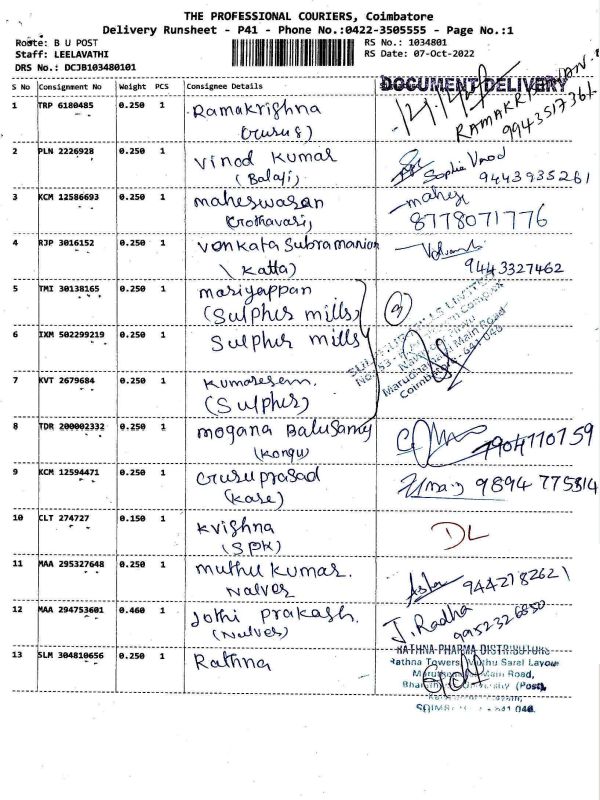 THE PROFESSIONAL COURIERS, Coimbatore
Delivery Runsheet - P41 - Phone No.:0422-3505555 - Page No.:1
Route: B U POST
RS No.: 1034801
Staff: LEELAVATHI
RS Date: 07-Oct-2022
DRS No.: DCJB103480101
S No Consignment No Weight PCS Consignee Details DOCUMENT DELIVERY
1 TRP 6180485 0.250 1 Ramakrishna
RAMAKRISHNAN
9943517361
2 PLN 2226928 0.250 1 Vinod Kumar
(Balaji) Sophie Vinod
9443935261
3 KCM 12586693 0.250 1 maheswaran
8778071776
4 RJP 3016152 0.250 1 Venkata Subramanian
(Katta) 9443327462
5 TMI 30138165 0.250 1 mariyappan
(Sulpher mills) 3
6 IXM 502299219 0.250 1 Sulpher mills
Marudhamalai Main Road
Coimbatore - 641 046.
7 KVT 2679684 0.250 1
(Sulpher)
8 TDR 200002332 0.250 1 mogana Balusamy
(Kongu) 7904710759
9 KCM 12594471 0.250 1 Guruprasad
(Kase) 9894 775814
10 CLT 274727 0.150 1 Krishna
(SPK) DL
11 MAA 295327648 0.250 1 muthu kumar.
Nalver 9442782621
12 MAA 294753601 0.460 1 Jothi Prakash.
(Nalver) J. Radha
9952326850
13 SLM 304810656 0.250 1 Rathna
RATHNA PHARMA DISTRIBUTORS
Rathna Towers, Muthu Saral Layout
Main Road,
(Post),
641 046.